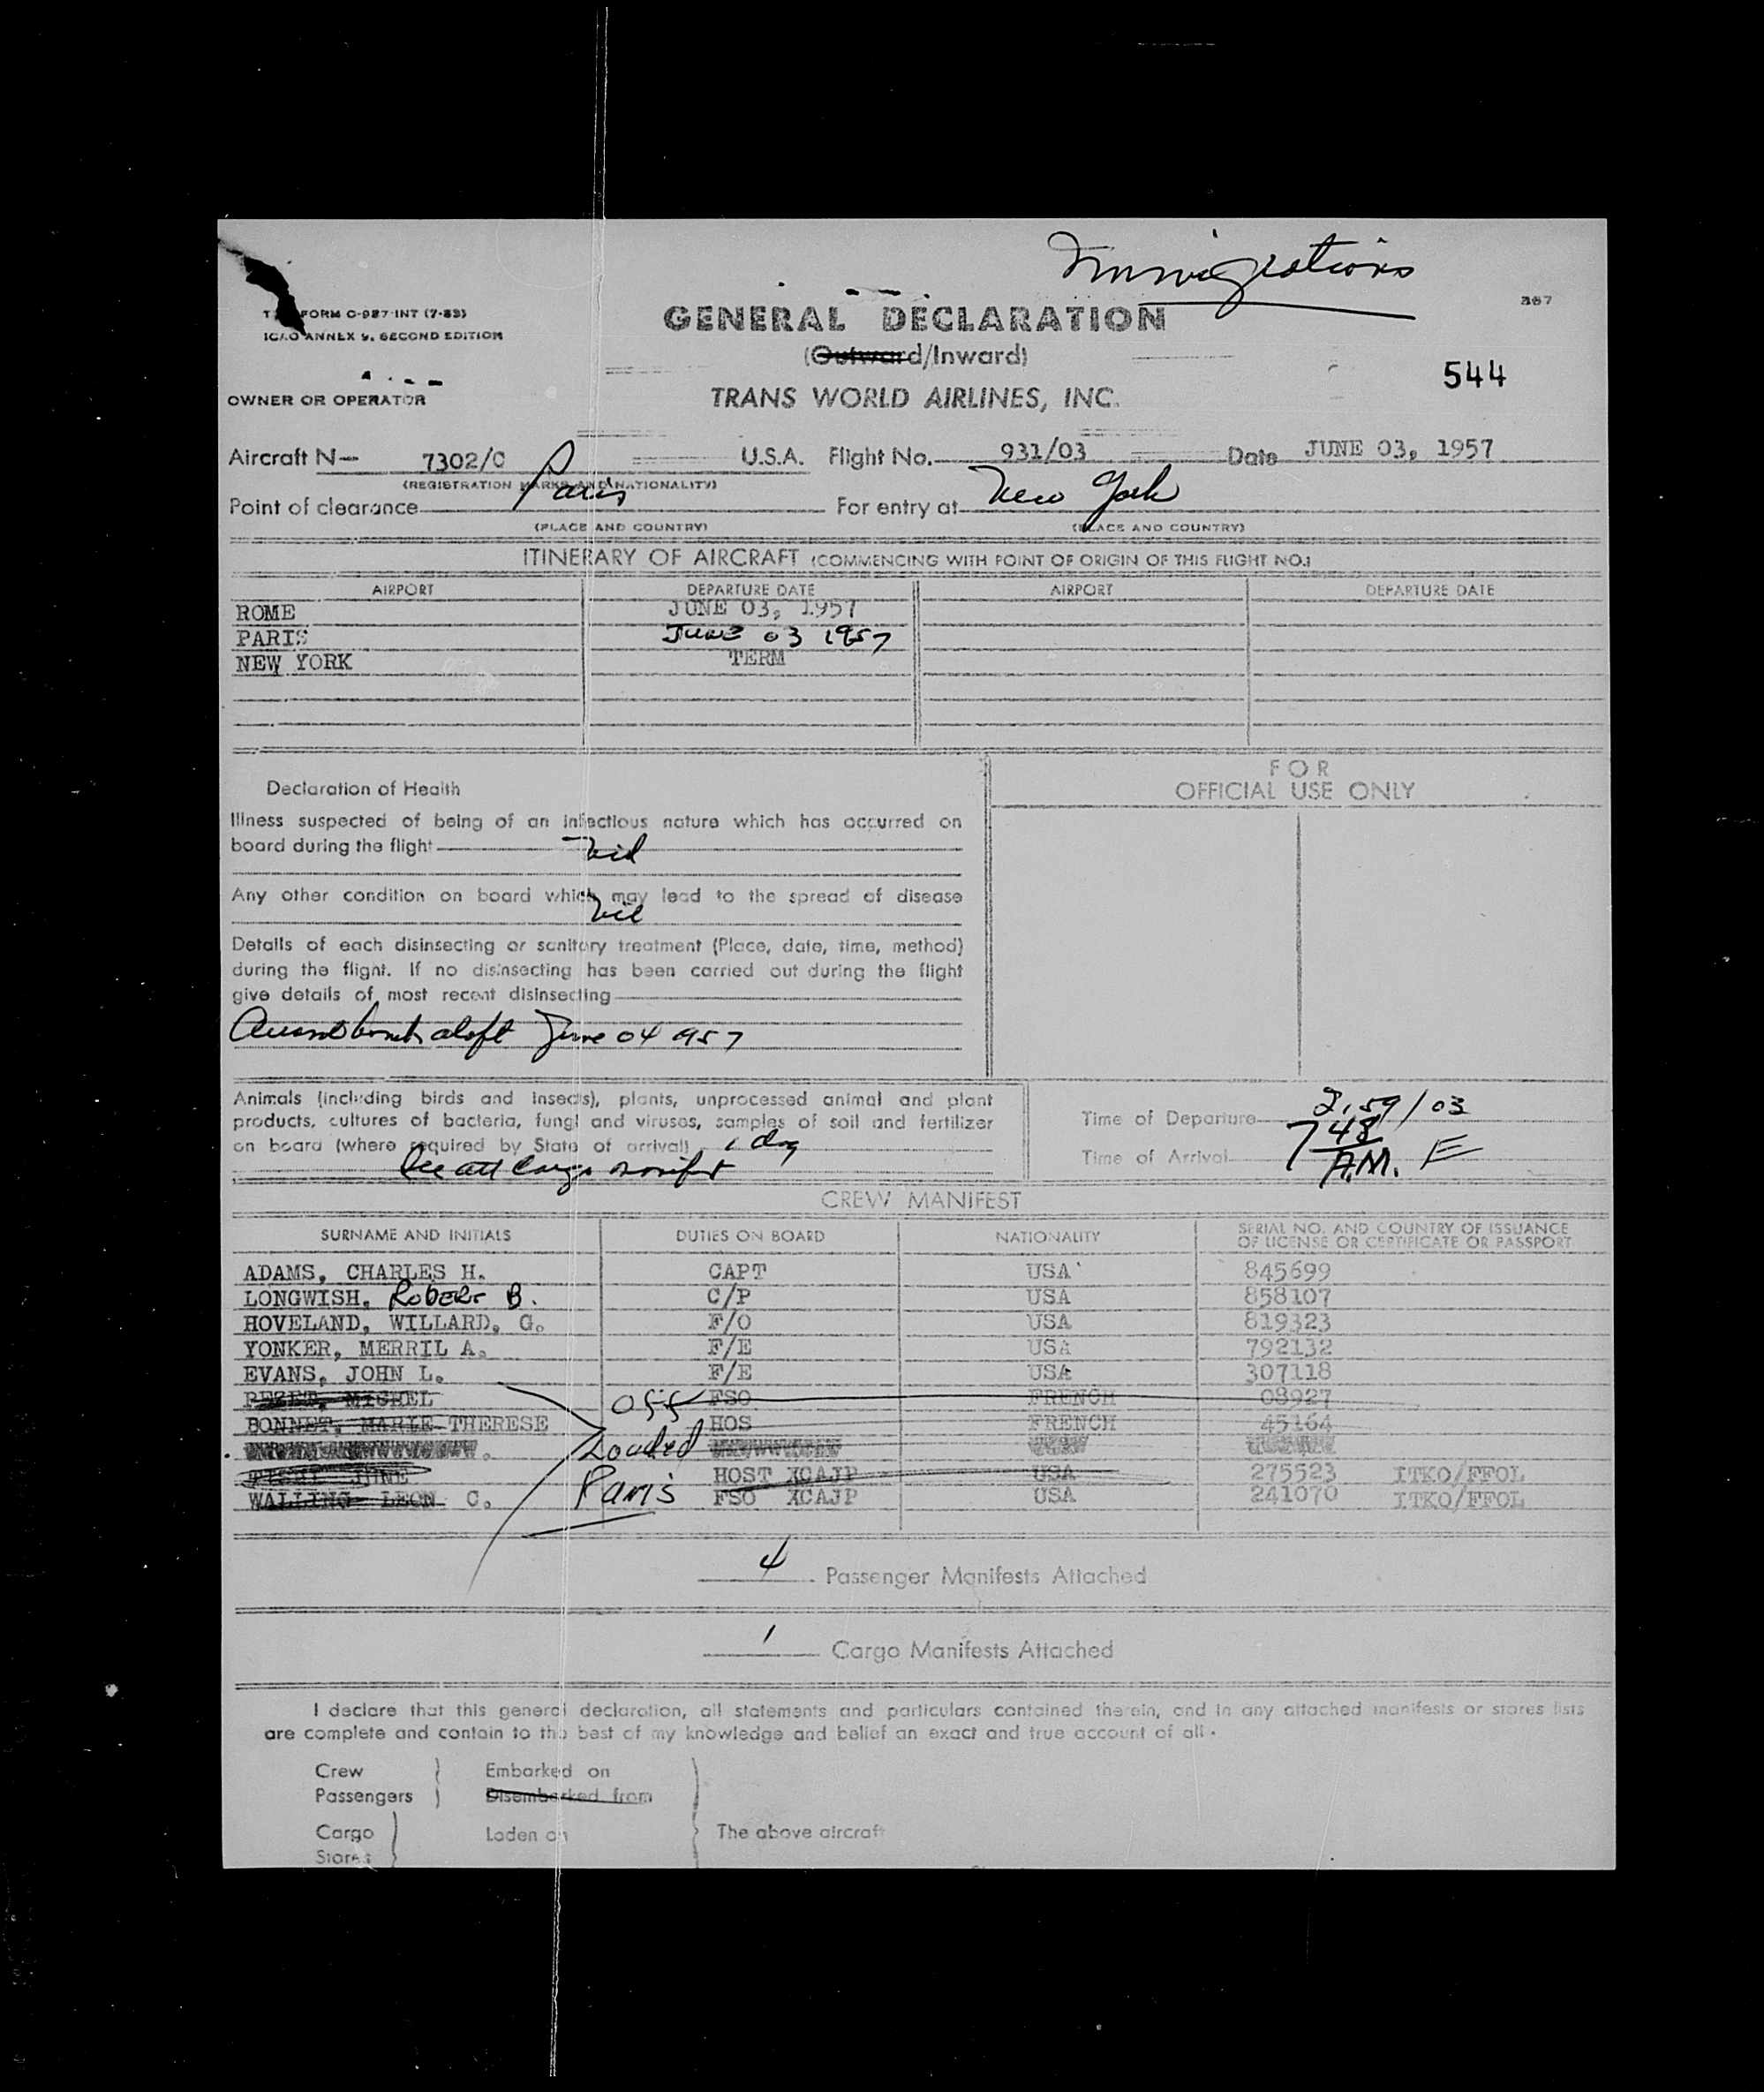 Immigrations
FORM C-987-INT (7-53)
367
ICAO ANNEX 9, SECOND EDITION
GENERAL DECLARATION
(Outward/Inward)
544
OWNER OR OPERATOR
TRANS WORLD AIRLINES, INC.
Aircraft N— 7302/C U.S.A. Flight No. 931/03 Date JUNE 03, 1957
(REGISTRATION MARKS AND NATIONALITY)
Point of clearance Paris For entry at New York
(PLACE AND COUNTRY) (PLACE AND COUNTRY)
ITINERARY OF AIRCRAFT (COMMENCING WITH POINT OF ORIGIN OF THIS FLIGHT NO.)
AIRPORT DEPARTURE DATE AIRPORT DEPARTURE DATE
ROME JUNE 03, 1957
PARIS JUNE 03 1957
NEW YORK TERM
FOR
OFFICIAL USE ONLY
Declaration of Health
Illness suspected of being of an infectious nature which has occurred on
board during the flight Nil
Any other condition on board which may lead to the spread of disease
Nil
Details of each disinsecting or sanitary treatment (Place, date, time, method)
during the flight. If no disinsecting has been carried out during the flight
give details of most recent disinsecting
aloft June 04 1957
Animals (including birds and insects), plants, unprocessed animal and plant
products, cultures of bacteria, fungi and viruses, samples of soil and fertilizer
on board (where required by State of arrival) 1 dog
See att cargo
Time of Departure 2,59/03
Time of Arrival 7 48 A.M. E
CREW MANIFEST
SURNAME AND INITIALS DUTIES ON BOARD NATIONALITY SERIAL NO. AND COUNTRY OF ISSUANCE
OF LICENSE OR CERTIFICATE OR PASSPORT
ADAMS, CHARLES H. CAPT USA 845699
LONGWISH, Robert B. C/P USA 858107
HOVELAND, WILLARD, G. F/O USA 819323
YONKER, MERRIL A. F/E USA 792132
EVANS, JOHN L. F/E USA 307118
MICHEL Off FSO FRENCH 08927
BONNET, MARIE THERESE HOS FRENCH 45164
Loaded
JUNE HOST XCAJP USA 275523 ITKO/FFOL
WALLING LEON C. Paris FSO XCAJP USA 241070 ITKO/FFOL
4 Passenger Manifests Attached
1 Cargo Manifests Attached
I declare that this general declaration, all statements and particulars contained therein, and in any attached manifests or stores lists
are complete and contain to the best of my knowledge and belief an exact and true account of all.
Crew Embarked on
Passengers Disembarked from
Cargo Laden on The above aircraft
Stores